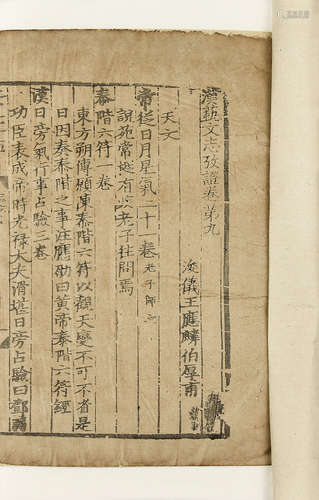 漢藝文志攷證卷第九
浚儀王應麟伯厚甫
天文
帝從日月星氣二十一卷老子師之
說苑常樅有以老子往問焉
泰階六符一卷
東方朔傳願陳泰階六符以觀天變不可不省是
日因奏泰階之事注應劭曰黃帝泰階六符經
漢日旁氣行事占驗三卷
功臣表成帝時光祿大夫滑堪日旁占驗曰鄧